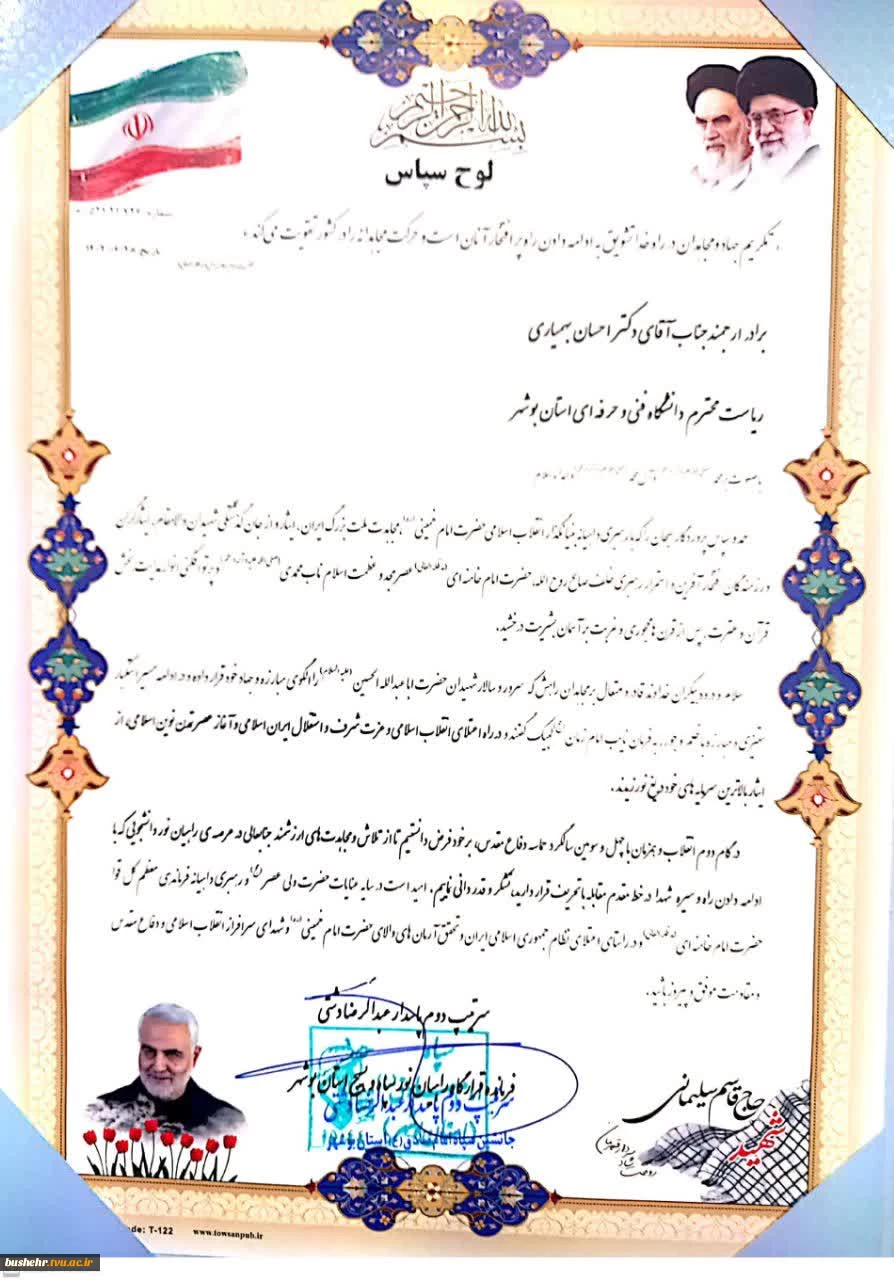 بسم الله الرحمن الرحیم
لوح سپاس
« تکریم جهاد و مجاهدان در راه خدا تشویق به ادامه دادن راه پر افتخار آنان است و حرکت مجاهدانه را در کشور تقویت می کند »
برادر ارجمند جناب آقای دکتر احسان بهمیاری
ریاست محترم دانشگاه فنی و حرفه ای استان بوشهر
با صلوات بر محمد و آل محمد
حمد و سپاس پروردگار سبحان را که با رهبری داهیانه بنیانگذار انقلاب اسلامی حضرت امام خمینی (ره)، مجاهدت ملت بزرگ ایران، ایثار و از جان گذشتگی شهیدان والامقام، ایثارگران
و رزمندگان افتخار آفرین و استمرار رهبری خلف صالح روح الله، حضرت امام خامنه ای (مدظله العالی) عصر مجد و عظمت اسلام ناب محمدی و پرتو افکنی انوار هدایت بخش
قرآن و عترت، پس از قرن ها مهجوری و غربت بر آسمان بشریت درخشید.
سلام و درود بیکران خداوند قادر و متعال بر مجاهدان راهش که سرور و سالار شهیدان حضرت اباعبدالله الحسین (علیه السلام) را الگوی مبارزه و جهاد خود قرار داده و در ادامه مسیر استکبار
ستیزی و مبارزه با ظلم و جور، به فرمان نایب امام زمان لبیک گفتند و در راه اعتلای انقلاب اسلامی و عزت شرف و استقلال ایران اسلامی و آغاز عصر تمدن نوین اسلامی، از
ایثار بالاترین سرمایه های خود دریغ نورزیدند.
در گام دوم انقلاب و همزمان با چهل و سومین سالگرد حماسه دفاع مقدس، بر خود فرض دانستیم تا از تلاش و مجاهدت های ارزشمند جنابعالی در عرصه ی راهیان نور دانشجویی که با
ادامه دادن راه و سیره شهدا در خط مقدم مقابله با تحریف قرار دارید، تشکر و قدردانی نماییم. امید است در سایه عنایات حضرت ولی عصر و رهبری داهیانه فرماندهی معظم کل قوا
حضرت امام خامنه ای (مدظله العالی) و در راستای اعتلای نظام جمهوری اسلامی ایران و تحقق آرمان های والای حضرت امام خمینی (ره) و شهدای سرافراز انقلاب اسلامی و دفاع مقدس
و مقاومت موفق و پیروز باشید.
سرتیپ دوم پاسدار عبدالرضا دشتی
فرمانده قرارگاه راهیان نور سپاه و بسیج استان بوشهر
سرتیپ دوم پاسدار عبدالرضا دشتی
جانشین سپاه امام صادق (ع) استان بوشهر
حاج قاسم سلیمانی
شهید
سردار
روحت شاد
Code: T-122 www.towsanpub.ir
bushehr.tvu.ac.ir